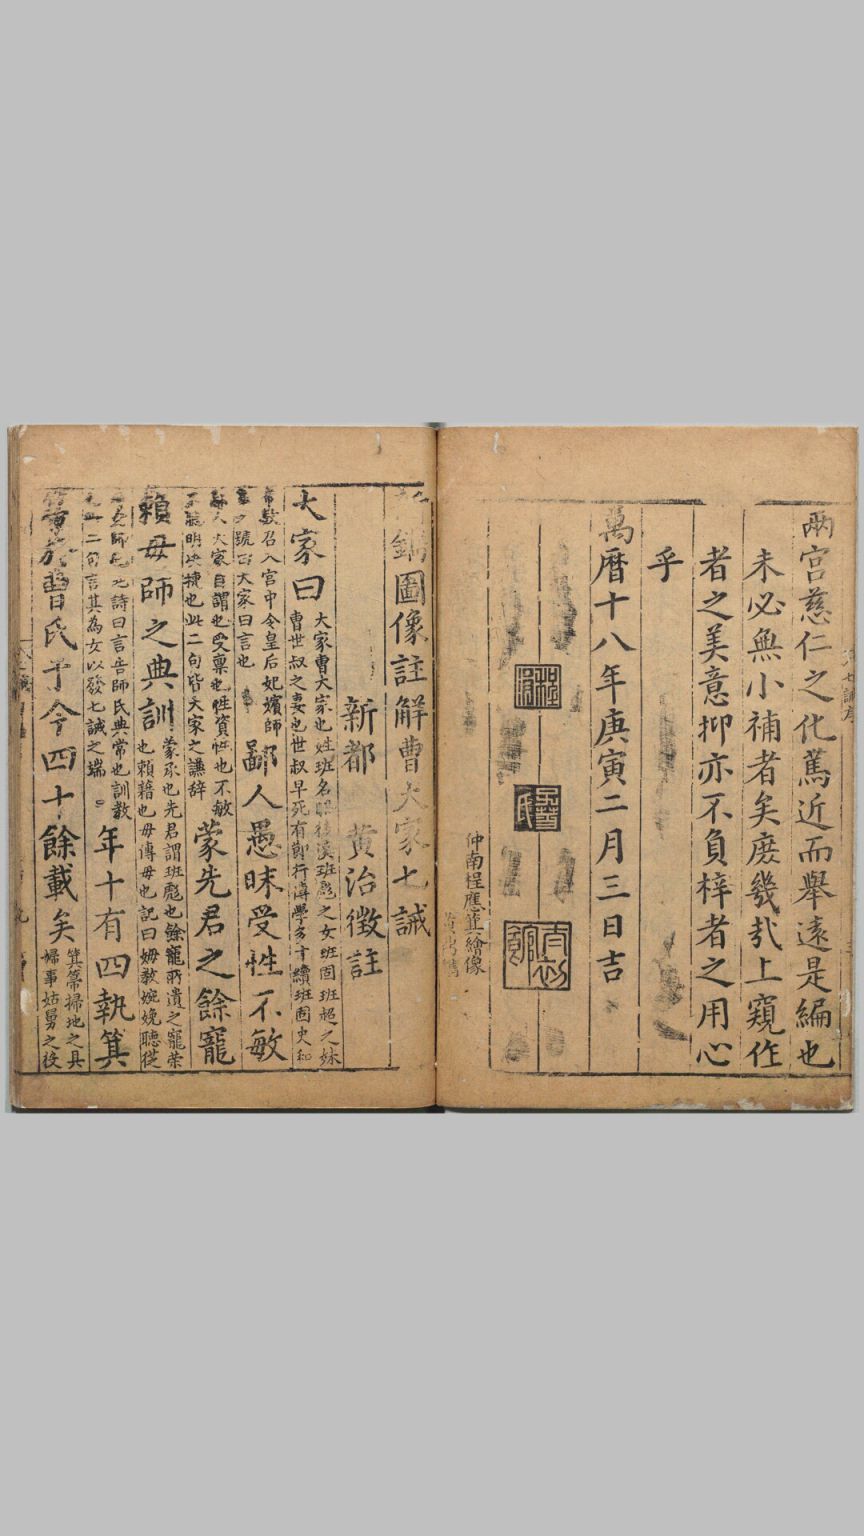 兩宮慈仁之化篤近而舉遠是編也
未必無小補者矣庶幾哉上窺作
者之美意抑亦不負梓者之用心
乎
萬曆十八年庚寅二月三日吉
仲南程應箕繪像
鐫圖像註解曹大家七誡
新都 黃治徵註
大家曰
大家曹大家也姓班名昭後漢班彪之女班固班超之妹
曹世叔之妻也世叔早死有節行溥學多才續班固史和
帝數召入宮中令皇后妃嬪師
號曰大家曰言也
鄙人愚昧受性不敏
人大家自謂也受稟也性資性也不敏
聰明決捷也此二句皆大家之謙辞
蒙先君之餘寵
賴毋師之典訓
蒙承也先君謂班彪也餘寵所遺之寵荣
也賴藉也毋傅毋也記曰姆教婉娩聽從
師氏也詩曰言告師氏典常也訓教
二句言其為女以發七誡之端
年十有四執箕
箒於曹氏于今四十餘載矣
箕箒掃地之具
婦事姑舅之役